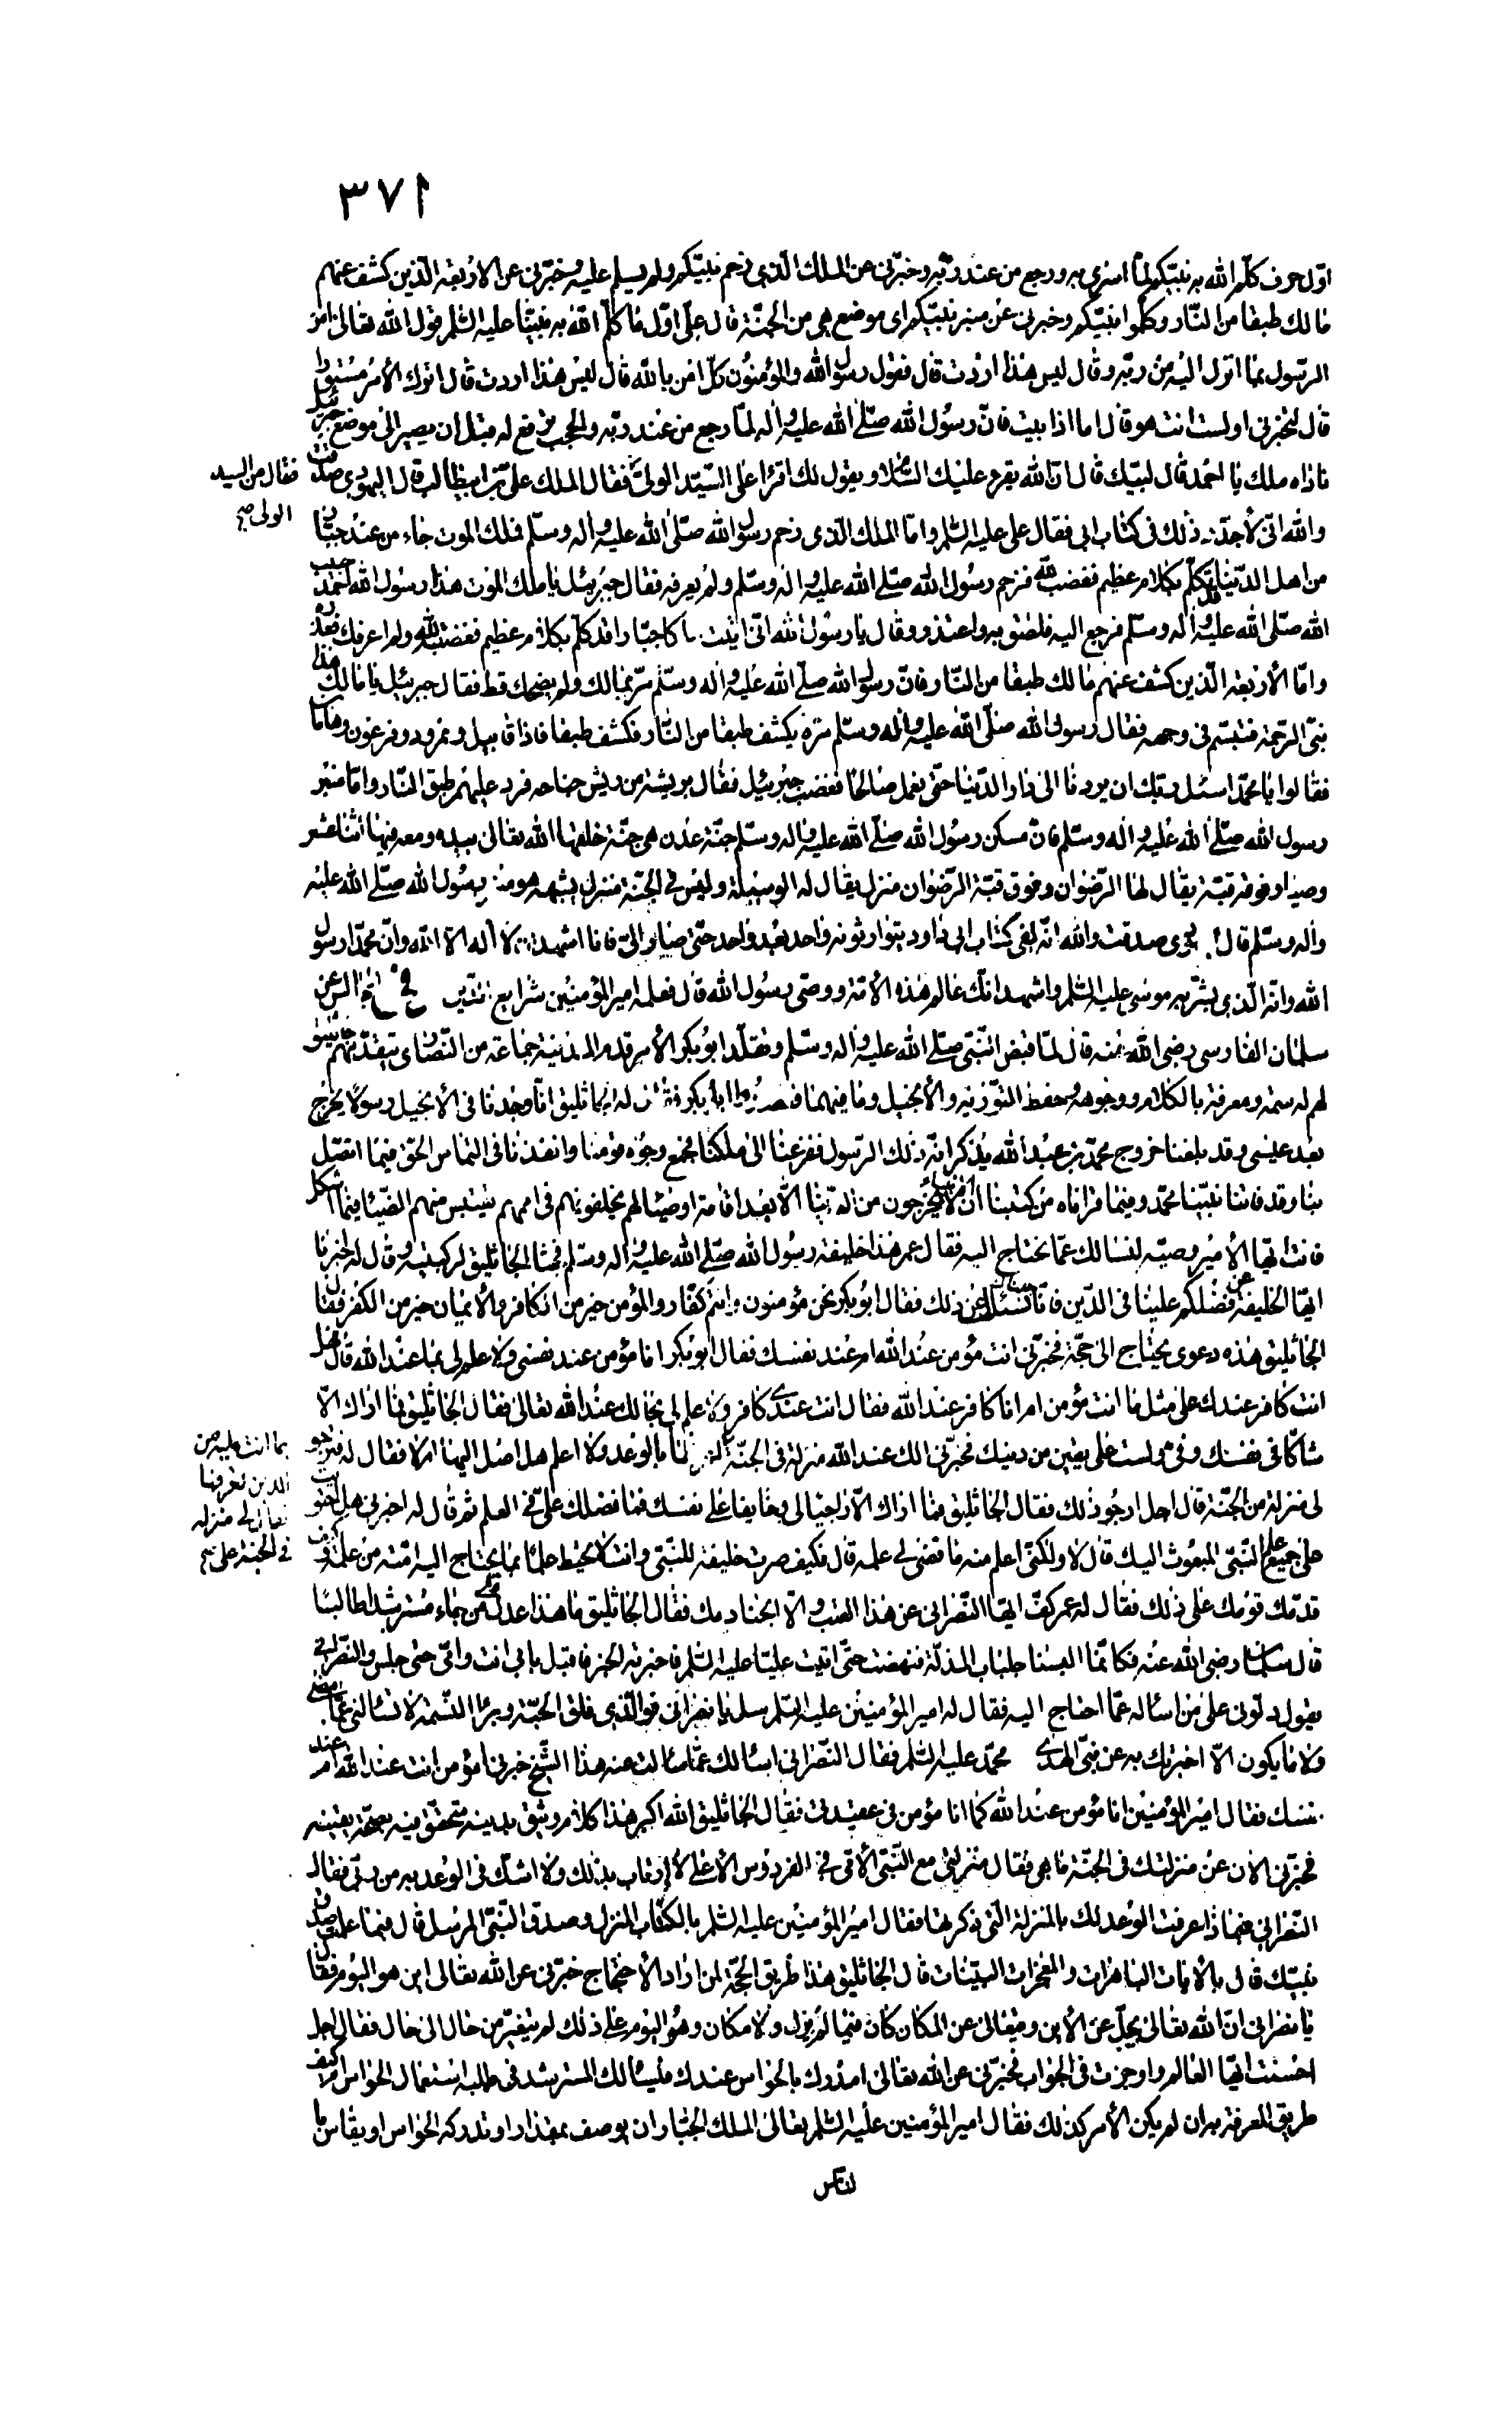 ٣٧١
اوّل حرف كلّم الله به نبيّكم لمّا اسري به ورجع من عند ربّه وخبّرني عن الملك الّذي زحم نبيّكم ولم يسلم عليه وخبّرني عن الاربعة الّذين كشف عنهم
مالك طبقا من النّار وكلّموا نبيّكم وخبرني عن منبر نبيّكم اي موضع هي من الجنّة قال علي اوّل ما كلّم الله به نبيّنا عليه السّلم قول الله تعالى امن
الرّسول بما انزل اليه من ربّه وقال ليس هذا اردت قال فقول رسول الله والمؤمنون كلّ امن بالله قال ليس هذا اردت قال اترك الأمر مستورا
قال لتخبرني اولست انت هو قال اما اذا ابيت فانّ رسول الله صلّى الله عليه واله لمّا رجع من عند ربّه والحجب ترفع له قبل ان يصير الى موضع جبرئيل
ناداه ملك يا احمد قال لبّيك قال انّ الله يقرء عليك السّلام ويقول لك اقرأ على السّيّد الوليّ فقال الملك عليّ بن ابيطالب قال اليهودي صدقت
فقال من السيد
الولي صح
والله انّي لأجد ذلك في كتاب ابي فقال علي عليه السّلم وامّا الملك الّذي زحم رسول الله صلّى الله عليه واله وسلّم فملك الموت جاء من عند جبّار
من اهل الدّنيا قد تكلّم بكلام عظيم فغضب لله فزحم رسول الله صلّى الله عليه واله وسلّم ولم يعرفه فقال جبرئيل يا ملك الموت هذا رسول الله احمد حبيب
الله صلّى الله عليه واله وسلّم فرجع اليه فلصق به واعتذر وقال يا رسول الله انّي اتيت ملكا جبّارا قد تكلّم بكلام عظيم فغضبت لله ولم اعرفك فعذره
وامّا الأربعة الّذين كشف عنهم مالك طبقا من النّار فانّ رسول الله صلّى الله عليه واله وسلّم مرّ بمالك ولم يضحك قط فقال جبرئيل يا مالك هذا
نبيّ الرّحمة فتبسّم في وجهه فقال رسول الله صلّى الله عليه واله وسلّم مره يكشف طبقا من النّار فكشف طبقا فاذا قابيل ونمرود وفرعون وهامان
فقالوا يا محمّد اسئل ربّك ان يردّنا الى دار الدّنيا حتّى نعمل صالحا فغضب جبرئيل فقال بريشة من ريش جناحه فرد عليهم طبق النّار وامّا منبر
رسول الله صلّى الله عليه واله وسلّم فانّ مسكن رسول الله صلّى الله عليه واله وسلّم جنّة عدن هي جنّة خلقها الله تعالى بيده ومعه فيها اثنا عشر
وصيا وفوقه قبّة يقال لها الرّضوان وفوق قبّة الرّضوان منزل يقال له الوسيلة وليس في الجنّة منزل يشبهه هو منبر رسول الله صلّى الله عليه
واله وسلّم قال صدقت والله انّه لفي كتاب ابي داود يتوارثونه واحد بعد واحد حتّى صار اليّ فانا اشهد ان لا اله الا الله وانّ محمّدا رسول
الله وانّه الّذي بشّر به موسى عليه السّلم واشهد انّك عالم هذه الأمّة ووصي رسول الله قال فعلمه امير المؤمنين شرايع الدّين عن
سلمان الفارسي رضي الله عنه قال لمّا قبض النّبيّ صلّى الله عليه واله وسلّم وتقلّد ابو بكر الأمر قدم المدينة جماعة من النّصارى يتقدّمهم جاثليق
لهم له سمت ومعرفة بالكلام ووجوهه وحفظ التّورية والأنجيل وما فيهما فقصدوا ابا بكر فقال له الجاثليق انّا وجدنا في الأنجيل رسولا يخرج
بعد عيسى وقد بلغنا خروج محمّد بن عبد الله يذكر انّه ذلك الرّسول ففزعنا الى ملكنا فجمع وجوه قومنا وانفذنا في التماس الحقّ فيما اتّصل
بنا وقد فاتنا نبيّنا محمّد وفيما قرأناه من كتبنا انّ الأنبياء لا يخرجون من الدّنيا الّا بعد اقامة اوصياء لهم يخلفونهم في اممهم يقتبس منهم الضّياء فيما اشكل
فانت ايّها الأمير وصيّه لنسالك عمّا نحتاج اليه فقال عمر هذا خليفة رسول الله صلّى الله عليه واله وسلّم فجثا الجاثليق لركبتيه وقال له اخبرنا
ايّها الخليفة عن فضلكم علينا في الدّين فانّا جئنا نسئل عن ذلك فقال ابو بكر نحن مؤمنون وانتم كفّار والمؤمن خير من الكافر والأيمان خير من الكفر فقال
الجاثليق هذه دعوى يحتاج الى حجّة فخبّرني انت مؤمن عند الله ام عند نفسك فقال ابو بكر انا مؤمن عند نفسي ولا علم لي بما عند الله قال فهل
انت كافر عندك على مثل ما انت مؤمن ام انا كافر عند الله فقال انت عندي كافر ولا علم لي بحالك عند الله تعالى فقال الجاثليق فما اراك الّا
شاكّا في نفسك وفيّ ولست على يقين من دينك فخبّرني الك عند الله منزلة في الجنّة بالوعد ولا اعلم هل اصل اليها ام لا فقال له فترجو
بما انت عليه من
الدين تعرفها
فقال لي منزلة
في الجنة على صح
لي منزلة من الجنّة قال اجل ارجو ذلك فقال الجاثليق فما اراك الّا راجيا لي وخائفا على نفسك فما فضلك عليّ في العلم ثم قال له اخبرني هل احتويت
على جميع علم النّبيّ المبعوث اليك قال لا ولكنّي اعلم منه ما قضي لي علمه قال فكيف صرت خليفة للنّبيّ وانت لا تحيط علما بما يحتاج اليه امّته من علمه وكيف
قدّمك قومك على ذلك فقال له عمر كفّ ايّها النّصراني عن هذا العتب والّا ابحنا دمك فقال الجاثليق ما هذا عدل على من جاء مسترشدا طالبا
قال سلمان رضي الله عنه فكانّما البسنا جلباب المذلّة فنهضت حتّى اتيت عليّا عليه السّلم فاخبرته الخبر فاقبل بابي انت وامّي حتى جلس والنّصراني
يقول دلّوني على من اسأله عمّا احتاج اليه فقال له امير المؤمنين عليه السّلم سل يا نصراني فوالّذي فلق الحبّة وبرأ النّسمة لا تسألني عمّا مضى
ولا ما يكون الّا اخبرتك به عن نبيّ الهدى محمّد عليه السّلم فقال النّصراني اسألك عمّا سالت عنه هذا الشّيخ خبرني امؤمن انت عند الله ام عند
نفسك فقال امير المؤمنين انا مؤمن عند الله كما انا مؤمن في عقيدتي فقال الجاثليق الله اكبر هذا كلام وثيق بدينه متحقّق فيه بصحّة يقينه
فخبّرني الان عن منزلتك في الجنّة ما هي فقال منزلتي مع النّبيّ الأمّي في الفردوس الأعلى لا ارتاب بذلك ولا اشكّ في الوعد به من ربّي فقال
النّصراني فبماذا عرفت الوعد لك بالمنزلة الّتي ذكرتها فقال امير المؤمنين عليه السّلم بالكتاب المنزل وصدق النّبيّ المرسل قال فبما علمت صدق
نبيّك قال بالأيات الباهرات والمعجزات البيّنات قال الجاثليق هذا طريق الحجّة لمن اراد الأحتجاج خبّرني عن الله تعالى اين هو اليوم فقال
يا نصراني انّ الله تعالى يجلّ عن الأين ويتعالى عن المكان كان فيما لم يزل ولا مكان وهو اليوم على ذلك لم يتغيّر من حال الى حال فقال اجل
احسنت ايّها العالم واوجزت في الجواب فخبّرني عن الله تعالى امدرك بالحواس عندك فيسألك المسترشد في طلبه استعمال الحواس ام كيف
طريق المعرفة به ان لم يكن الأمر كذلك فقال امير المؤمنين عليه السّلم تعالى الملك الجبّار ان يوصف بمقدار او تدركه الحواس او يقاس با
لناس